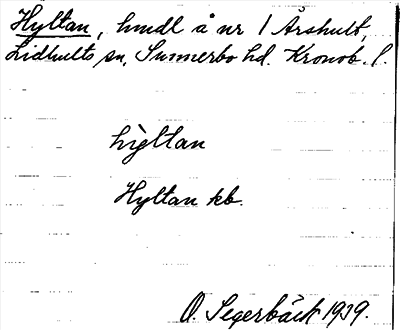 Hyltan, hmdl å nr 1 Årshult,
Lidhults sn, Sunnerbo hd. Kronob. l.
hỳltan
Hyltan kb.
O. Segerbäck 1939.